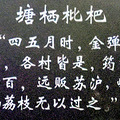 塘栖枇杷
“四五月时，金弹
，各村皆是，筠
百，远贩苏沪，
荔枝无以过之”